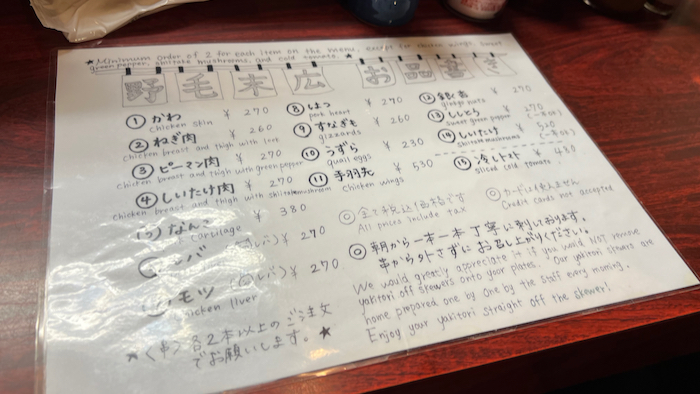 ★Minimum order of 2 for each item on the menu, except for chicken wings, sweet
green pepper, shiitake mushrooms, and cold tomato.★
野毛末広 お品書き
① かわ ¥ 270
chicken skin
② ねぎ肉 ¥ 260
chicken breast and thigh with leek
③ ピーマン肉 ¥ 270
chicken breast and thigh with green pepper
④ しいたけ肉 ¥ 270
chicken breast and thigh with shiitake mushroom
なんこつ ¥ 380
cartilage
バ ¥ 270
モツ ¥ 270
chicken liver
★〈串〉各2本以上のご注文
でお願いします。★
⑧ はつ ¥ 270
pork heart
⑨ すなぎも ¥ 260
gizzards
⑩ うずら ¥ 230
quail eggs
⑪ 手羽先 ¥ 530
chicken wings
⑫ 銀杏 ¥ 270
ginkgo nuts
⑬ ししとう ¥ 270
sweet green pepper
⑭ しいたけ ¥ 520
shiitake mushrooms
⑮ 冷しトマト ¥ 480
sliced cold tomato
◎ 全て税込価格です
All prices include tax
◎ カードは使えません
Credit cards not accepted
◎ 朝から一本一本丁寧に刺しております。
串から外さずにお召し上がりください。
We would greatly appreciate it if you would NOT remove
yakitori off skewers onto your plates. Our yakitori skewers are
home prepared one by one by the staff every morning.
Enjoy your yakitori straight off the skewer!